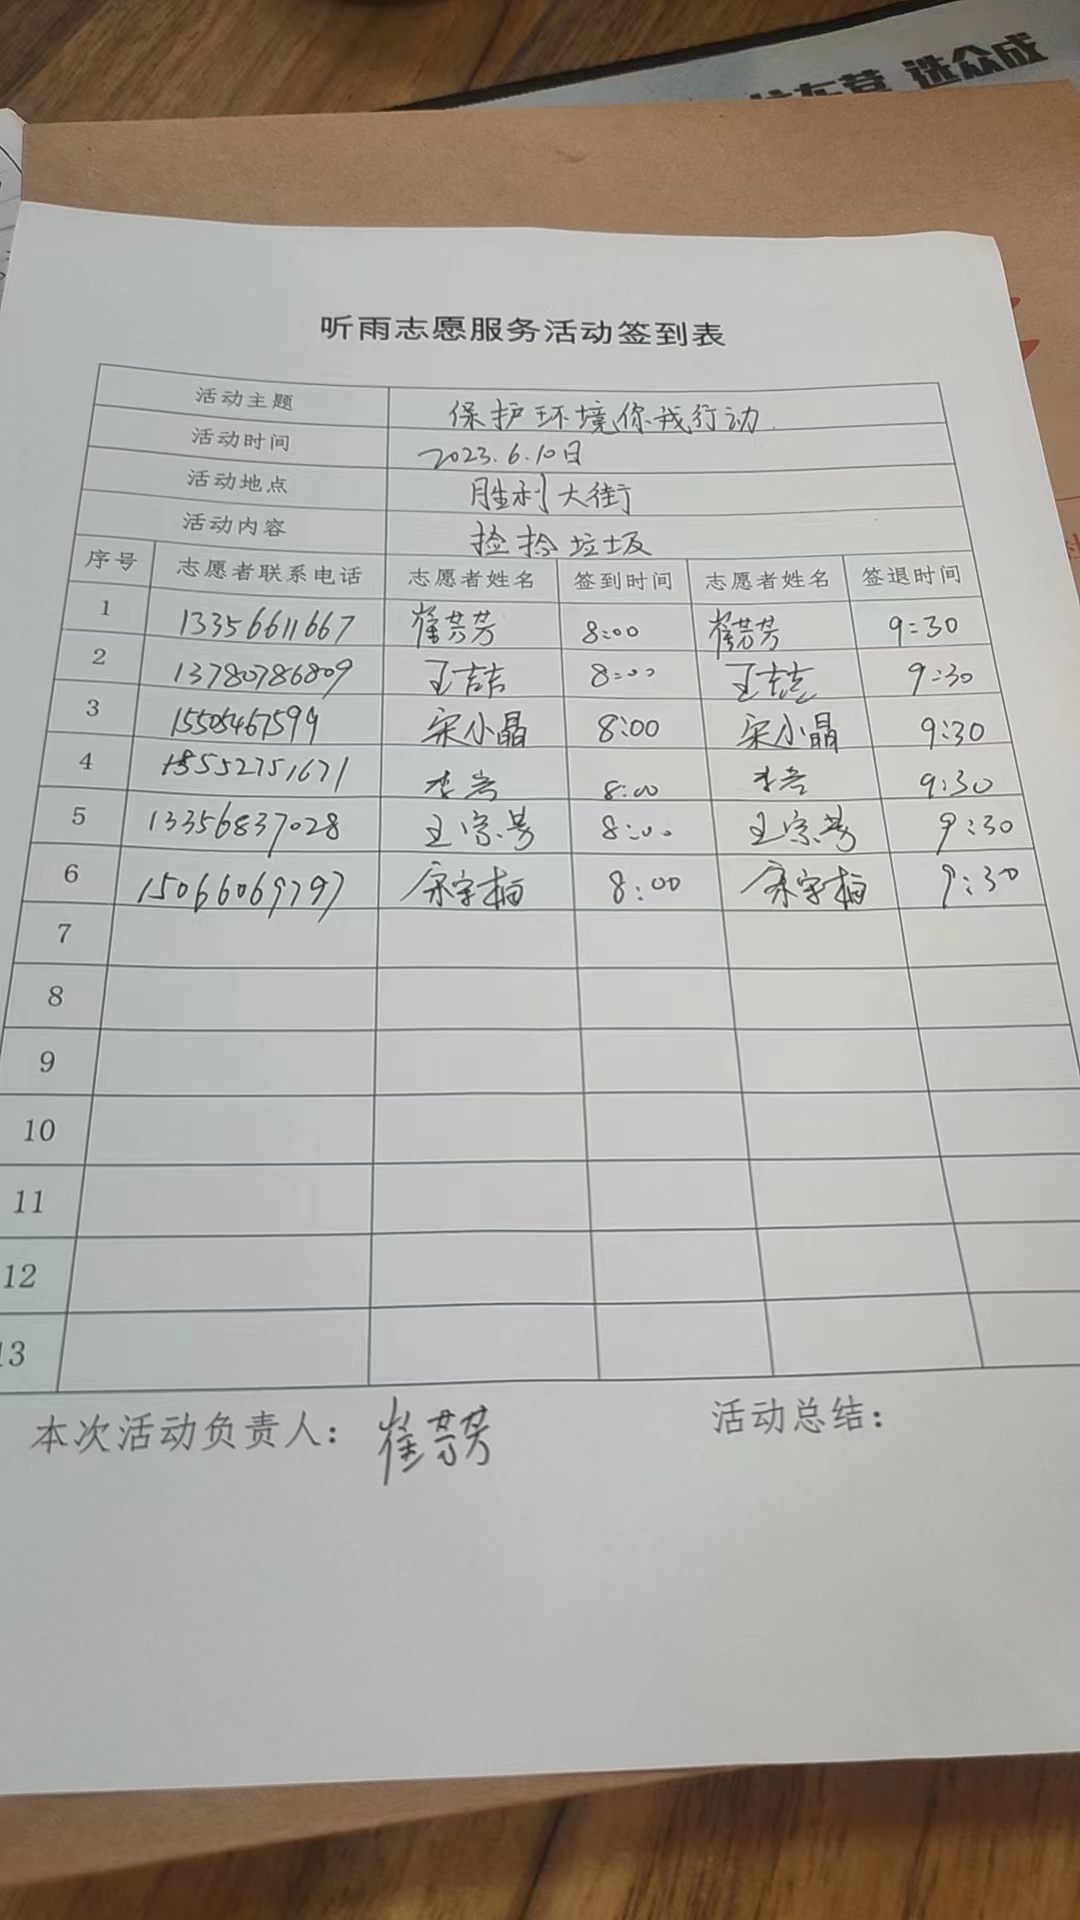 选众成
听雨志愿服务活动签到表
活动主题 保护环境你我行动
活动时间 2023.6.10日
活动地点 胜利大街
活动内容 捡拾垃圾
序号 志愿者联系电话 志愿者姓名 签到时间 志愿者姓名 签退时间
1 13356611667 崔芸芳 8:00 崔芸芳 9:30
2 13780786809 王喆 8:00 王喆 9:30
3 15505467599 宋小晶 8:00 宋小晶 9:30
4 18552751671 李岩 8:00 李岩 9:30
5 13356837028 8:00 9:30
6 15066069797 8:00 9:30
7
8
9
10
11
12
13
本次活动负责人：崔芸芳 活动总结：